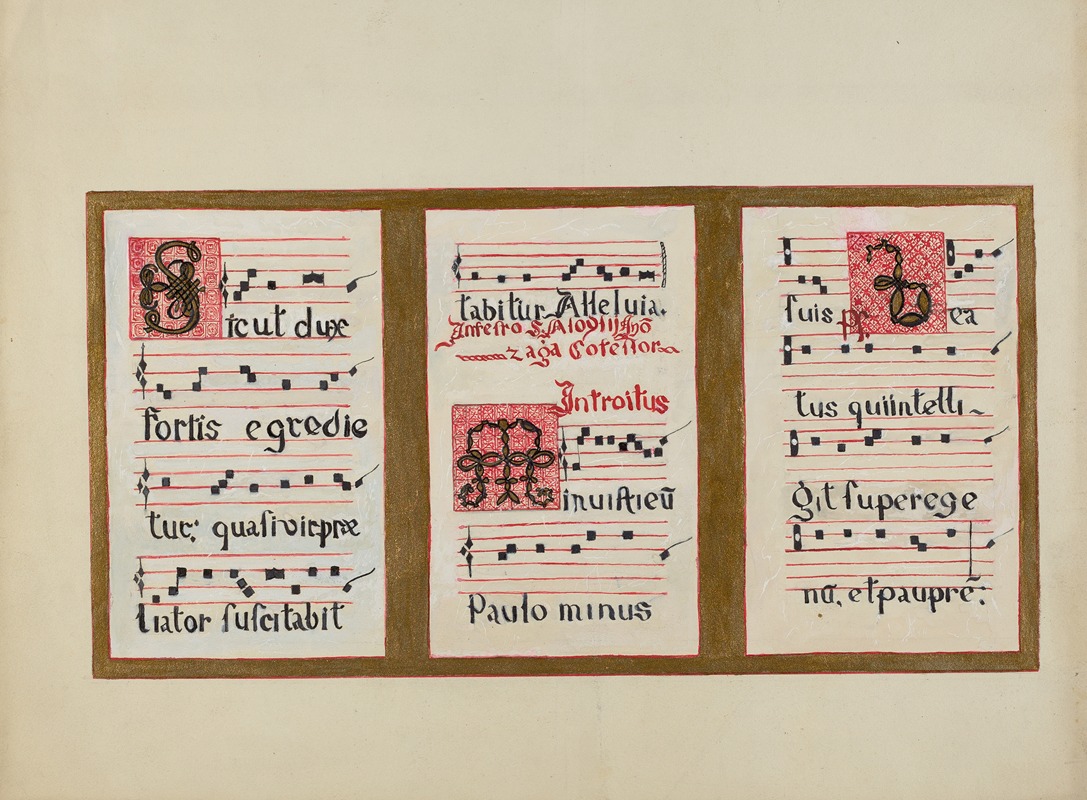 Sicut duxe
fortis egredie
tur: quasi vir præ
liator suscitabit
tabitur Alleluia.
In festo S. Alodii Gyo
zaga Cofessor
Introitus
Minuisti eū
Paulo minus
suis ps Bea
tus qui intelli~
git super ege
nū, et paupre: